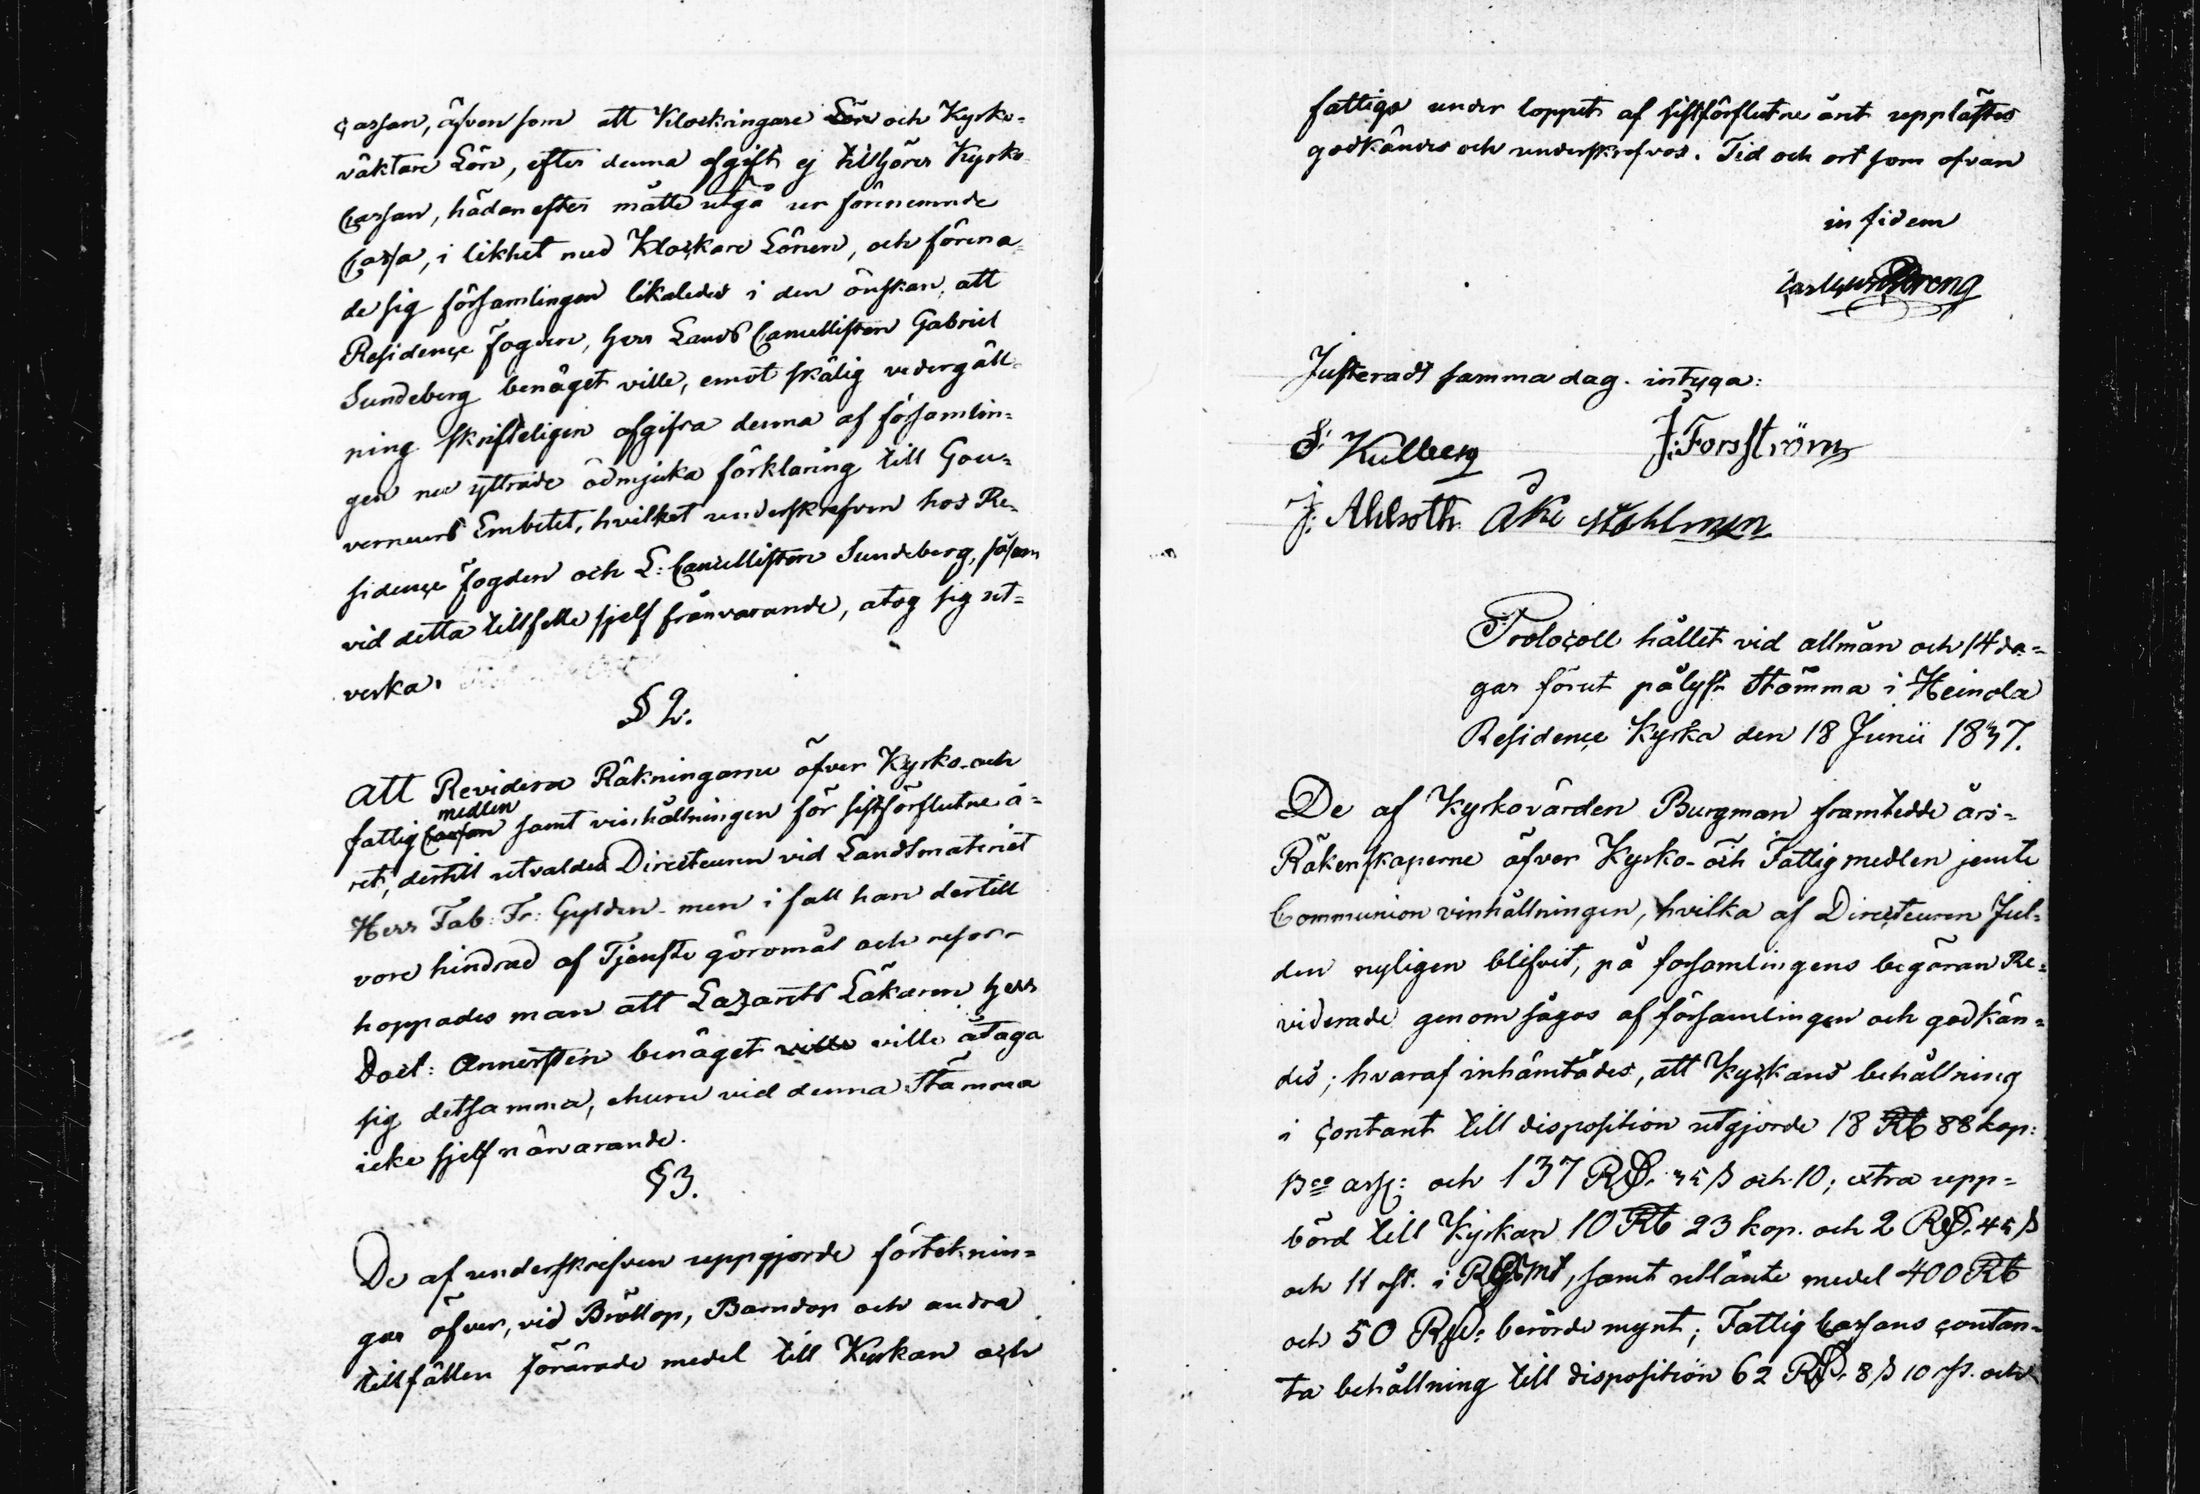 Cassan, äfvensom att Klockringare Lön och Kyrko-
väktare Lön, efter denna afgift ej tillhörer Kyrko
Cassan, hädanefter måtte utgå ur förenemnde
Cassa, i likhet med Klockare Lönen, och förena-
de sig församlingen likaledes i den önskan, att
Residence Fogden, Herr Lands Cancellisten Gabriel
Sundeberg benäget ville, emot skälig vedergäll-
ning skrifteligen afgifva denna af församlin-
gen nu yttrade ödmjuka förklaring till Gou-
verneurs Embetet, hvilket underskrefven hos Re-
sidence Fogden och L: Cancellisten Sundeberg, såsom
vid detta tillfelle sjelf frånvarande, åtog sig ut-
verka.
§ 2.
Att Revidera Räkningarne öfver Kyrko- och
medlen
fattig Cassan samt vinhållningen för sistförflutne å-
ret, dertill utvaldes Directeuren vid Landtmäteriet
Herr Fab: Fr: Gyldén - men i fall han dertill
vore hindrad af Tjenste göromål och resor -
hoppades man att Lazaretts Läkaren Herr
Doct: Annerstén benäget ville ville åtaga
sig detsamma, ehuru vid denna Stämma
icke sjelf närvarande.
§ 3.
De af underskrefven uppgjorde förteknin-
gar öfver, vid Bröllop, Barndop och andra
tillfällen förärade medel till Kyrkan och
fattiga under loppet af sistförflutne året upplästes
godkändes och underskrefvos. Tid och ort som ofvan
in fidem
Justeradt samma dag. intyga:
S: Kullberg J: Forsström
J: Ahlroth Åke Mahlmen
Protocoll hållet vid allmän och 14 da-
gar förut pålyst Stämma i Heinola
Residence Kyrka den 18 Junii 1837.
De af Kyrkovärden Burgman framtedde års-
Räkenskaperne öfver Kyrko- och Fattigmedlen jemte
Communion vinhållningen, hvilka af Directeuren Jul-
den nyligen blifvit, på församlingens begäran Re-
viderade genomsågos af församlingen och godkän-
des; hvaraf inhämtades, att Kyrkans behållning
i contant till disposition utgjorde 18 Rb 88 kop:
Bco ass: och 137 RD. 35 ß och 10; extra upp-
börd till Kyrkan 10 Rb 23 kop. och 2 RD. 45 ß
och 11 rst. i RGSmt, samt utlånte medel 400 Rb
och 50 RD: berörde mynt; Fattig Cassans contan-
ta behållning till disposition 62 RD. 8 ß 10 rst. och